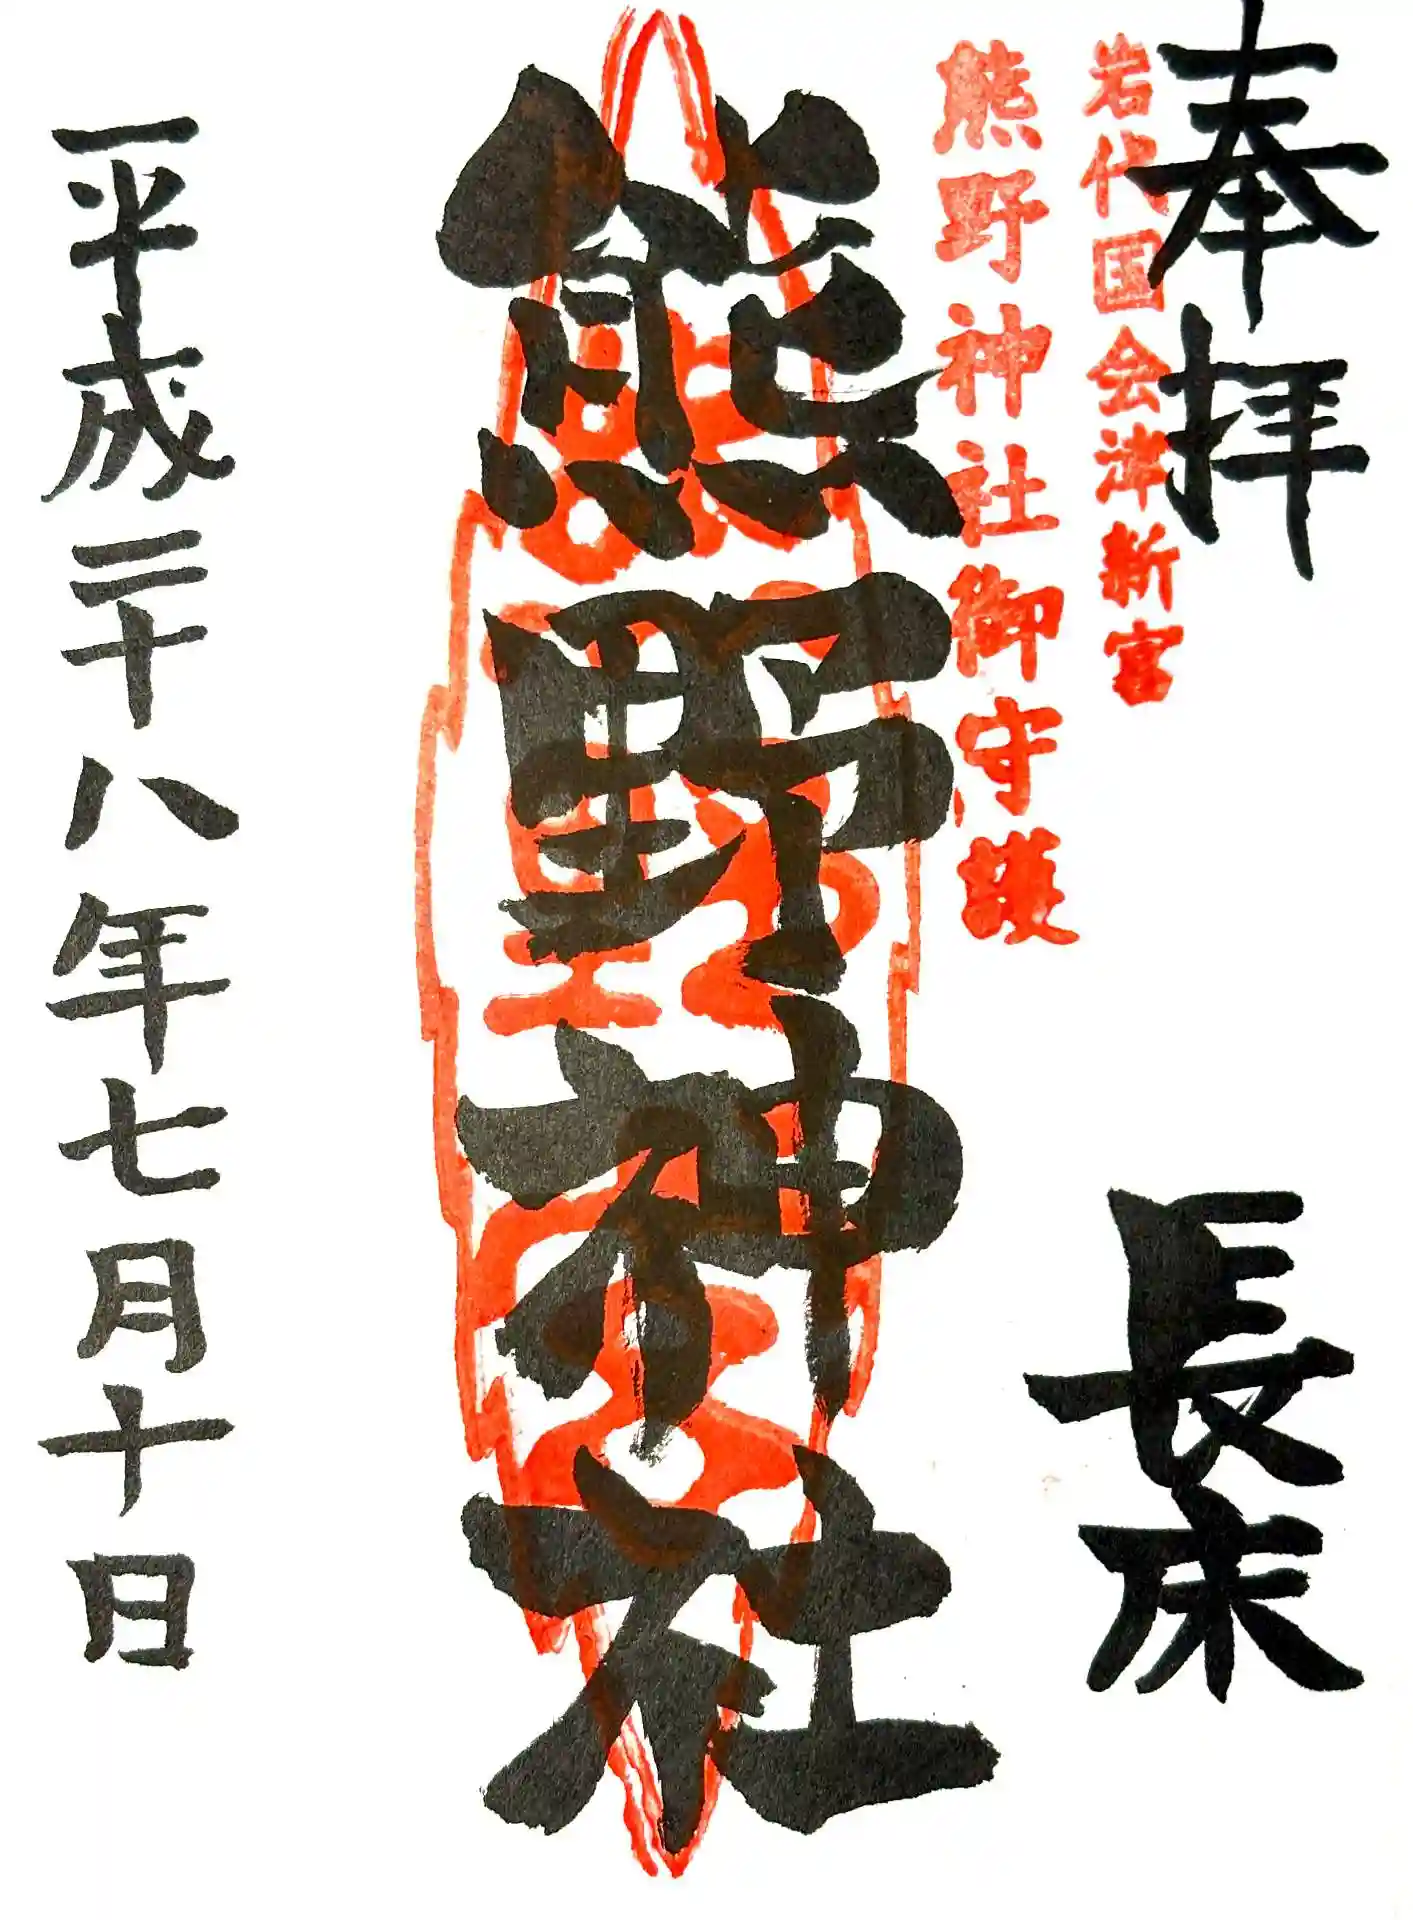 奉拝
長床
岩代国会津新宮
熊野神社御守護
熊野神社
平成二十八年七月十日